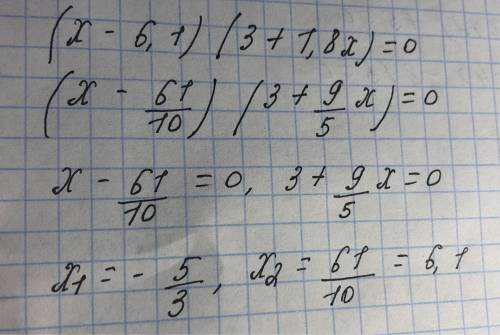 (x - 6,1) (3 + 1,8x) = 0
(x - 61/10) (3 + 9/5 x) = 0
x - 61/10 = 0, 3 + 9/5 x = 0
x1 = - 5/3, x2 = 61/10 = 6,1